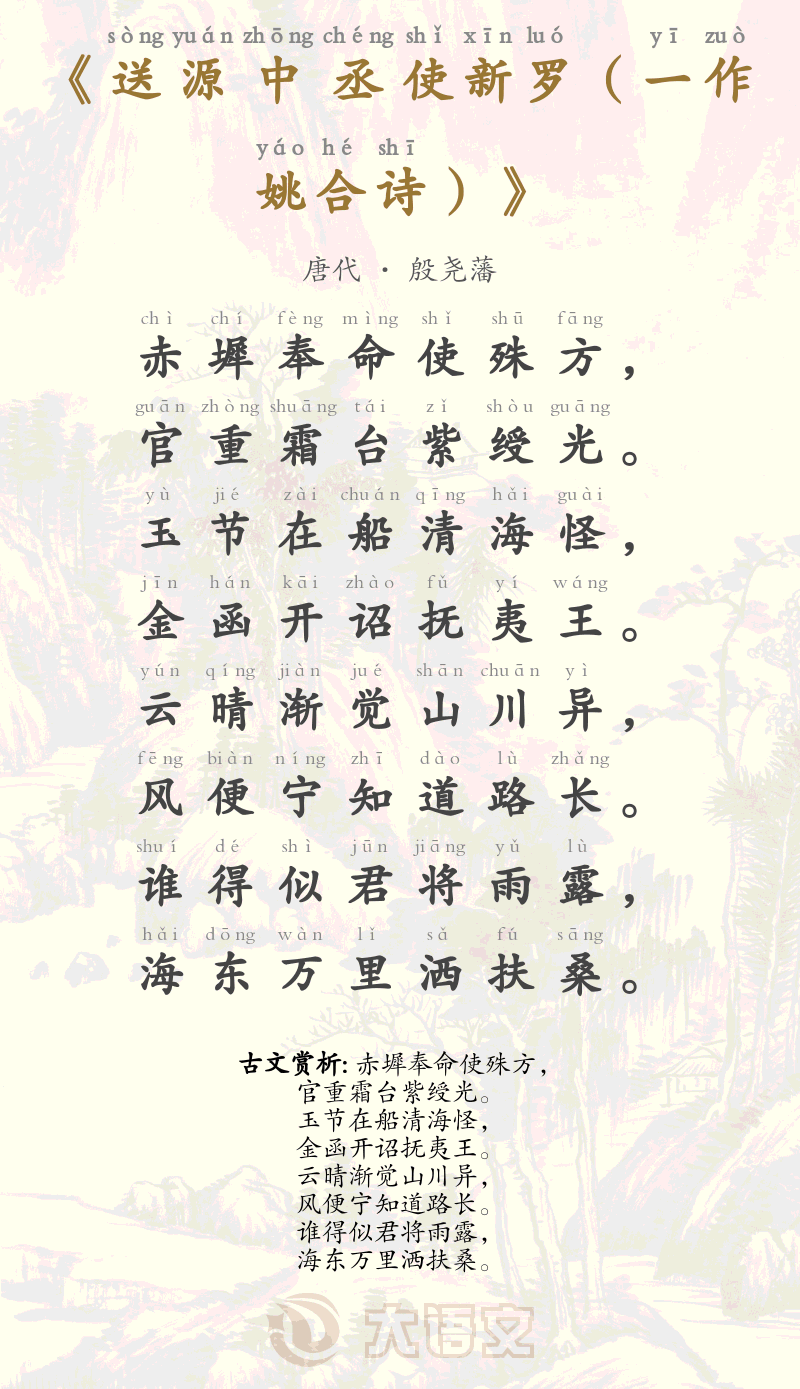 sòng yuán zhōng chéng shǐ xīn luó yī zuò
《送源中丞使新罗（一作
yáo hé shī
姚合诗）》
唐代 · 殷尧藩
chì chí fèng mìng shǐ shū fāng
赤墀奉命使殊方，
guān zhòng shuāng tái zǐ shòu guāng
官重霜台紫绶光。
yù jié zài chuán qīng hǎi guài
玉节在船清海怪，
jīn hán kāi zhào fǔ yí wáng
金函开诏抚夷王。
yún qíng jiàn jué shān chuān yì
云晴渐觉山川异，
fēng biàn níng zhī dào lù zhǎng
风便宁知道路长。
shuí dé shì jūn jiāng yǔ lù
谁得似君将雨露，
hǎi dōng wàn lǐ sǎ fú sāng
海东万里洒扶桑。
古文赏析: 赤墀奉命使殊方，
官重霜台紫绶光。
玉节在船清海怪，
金函开诏抚夷王。
云晴渐觉山川异，
风便宁知道路长。
谁得似君将雨露，
海东万里洒扶桑。
大语文